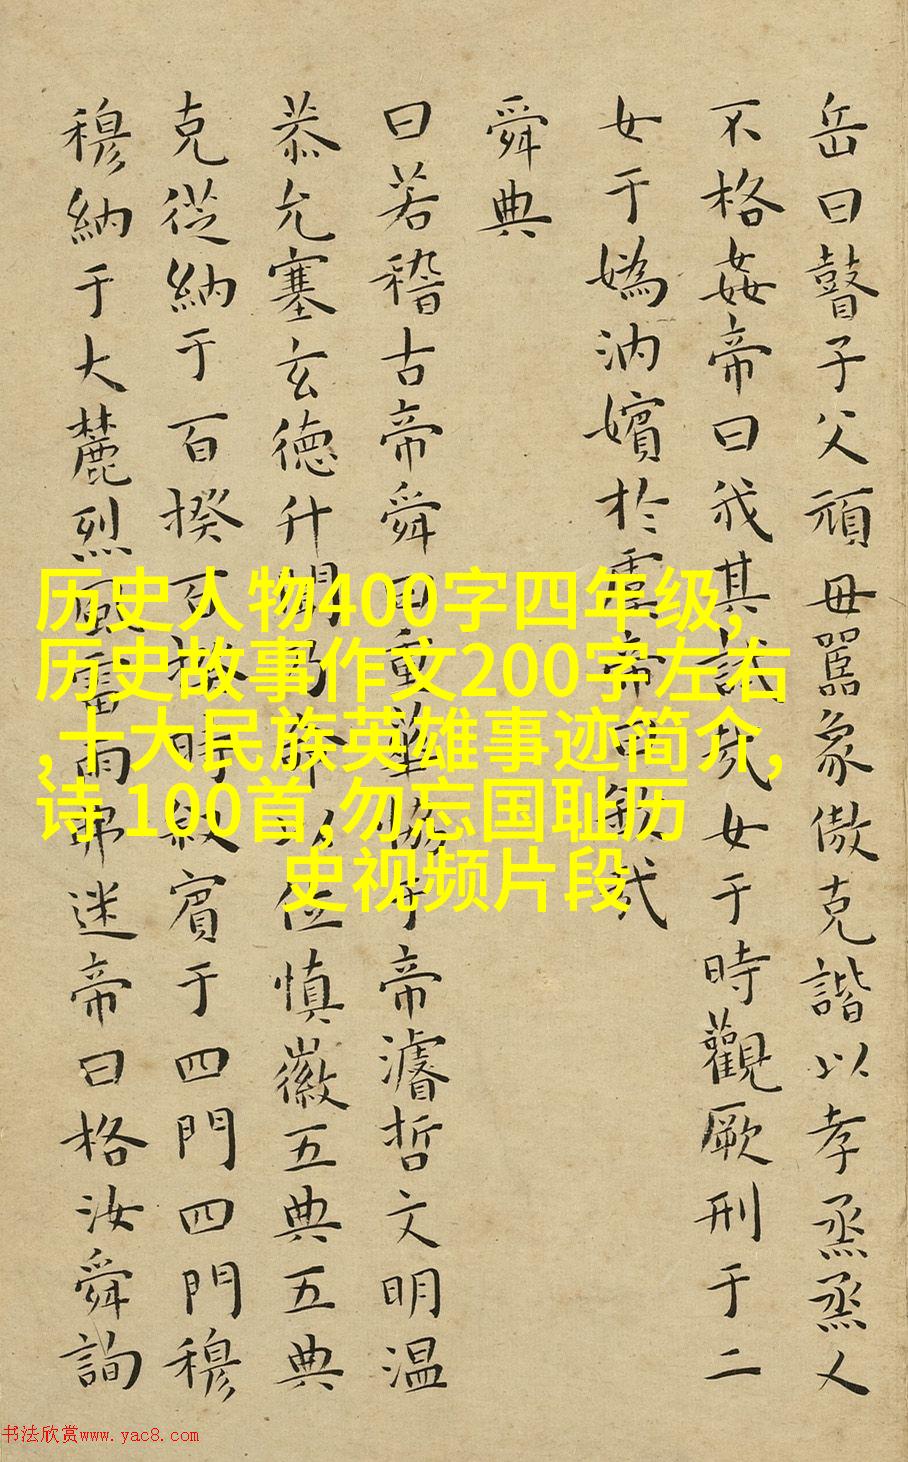 岳曰瞽子父頑毋嚚象傲克諧以孝烝烝乂
不格姦帝曰我其試哉女于時觀厥刑于二
女于媯汭嬪於虞帝曰欽哉
舜典
曰若稽古帝舜曰重華協于帝濬哲文明温
恭允塞玄德升聞乃命以位慎徽五典五典
克從納于百揆百揆時叙賓于四門四門穆
穆納于大麓烈風雷雨弗迷帝曰格汝舜詢
历史人物400字四年级,
历史故事作文200字左右
,十大民族英雄事迹简介,
诗 100首,勿忘国耻历
史视频片段
书法欣赏www.yac8.com